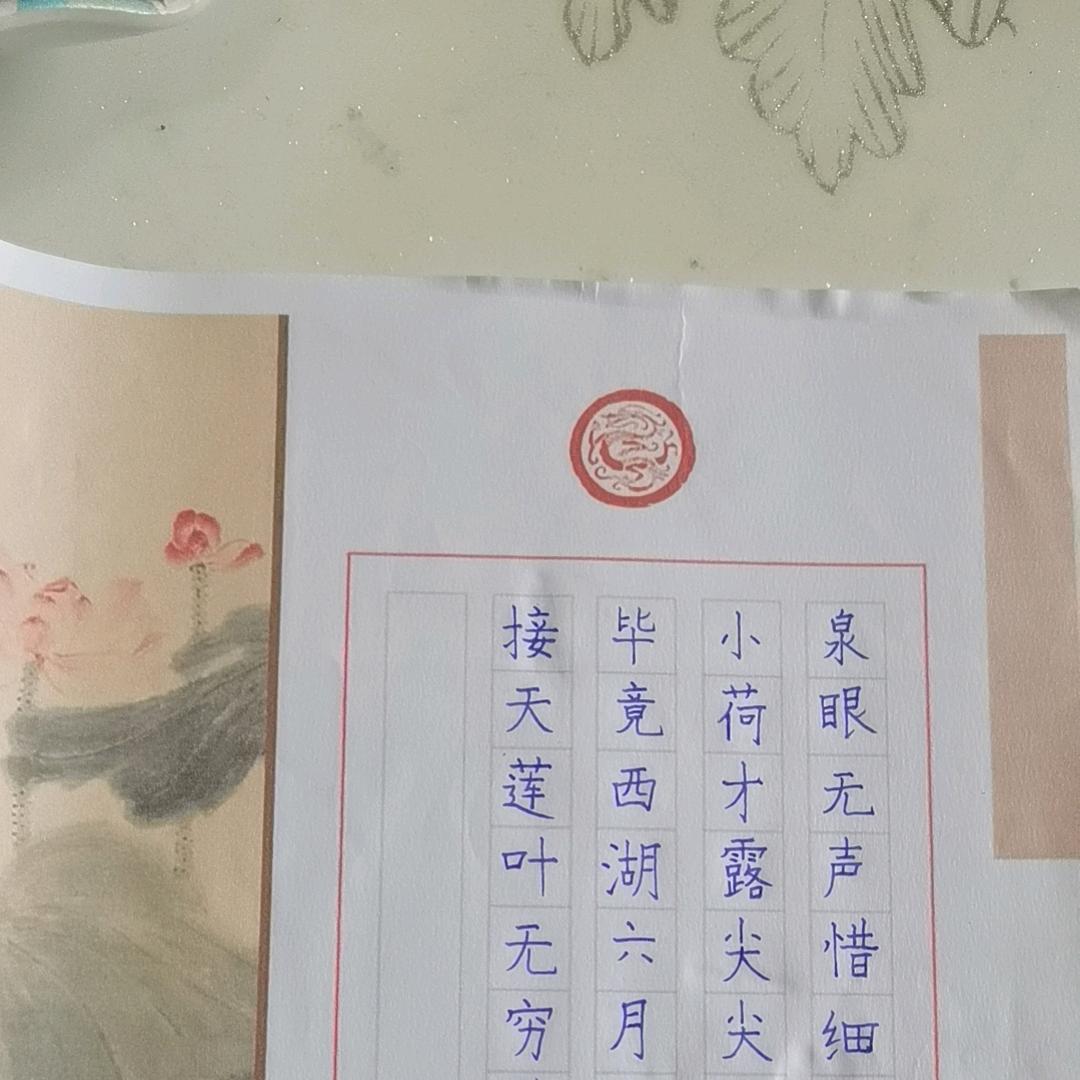 泉眼无声惜细
小荷才露尖尖
毕竟西湖六月
接天莲叶无穷